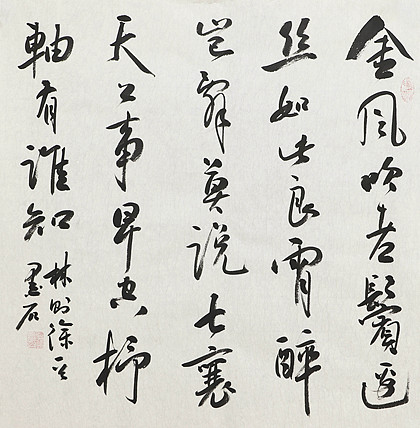 金風吹老鬢邊
絲如此良宵醉
豈辭莫說七襄
天上事早空杼
軸有誰知
林則徐
墨石